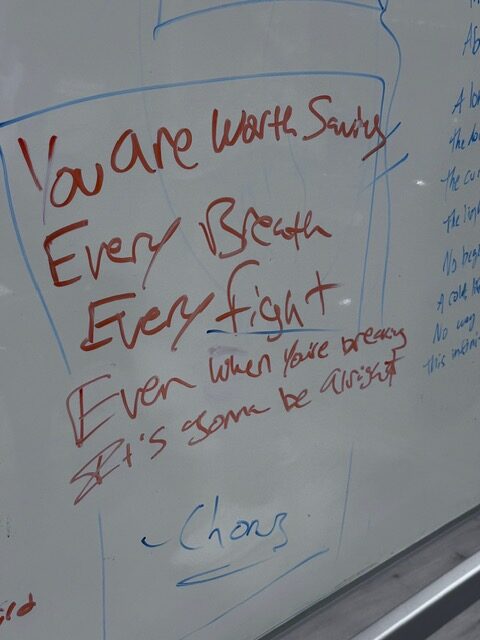 You are Worth Saving
Every Breath
Every fight
Even when You're breaking
It's gonna be Alright
- Chorus
A
Ab
A lo
The
The cu
The ligh
No beg
A cold
No way
This